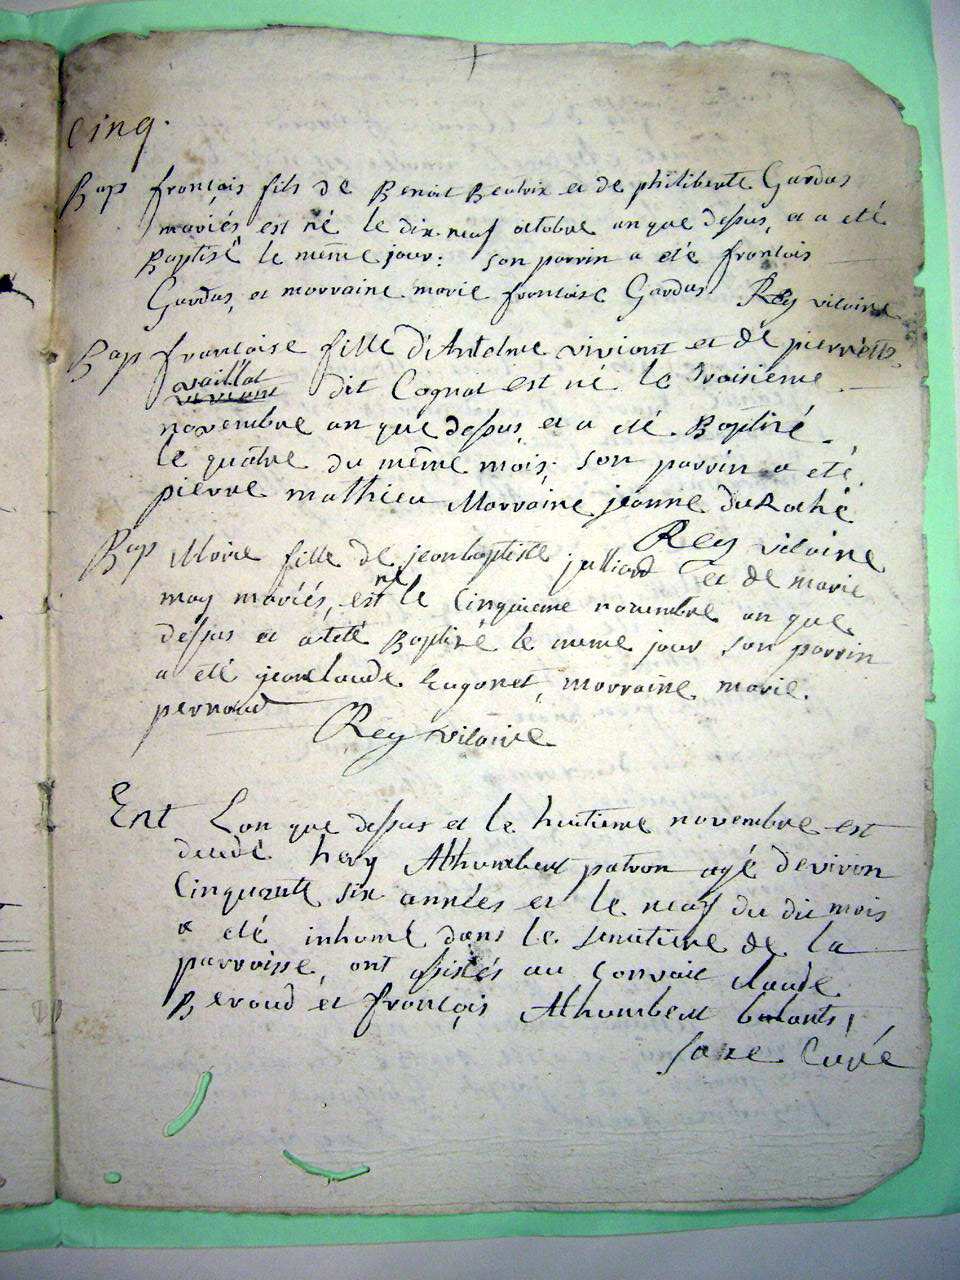 cinq.
Bap françois fils de Benoit Beatrix et de philiberte Gardas
mariés est né le dix neuf octobre an que dessus, et a eté
Baptisé le même jour: son parrin a eté françois
Gardas, et marraine marie françoise Gardas. Rey vicaire
Bap françoise fille d'Antoine viviant et de pierrette
vaillat
viviant dit Cognat est né le troisieme
novembre an que dessus et a eté Baptisé
le quatre du même mois. son parrin a eté
pierre mathieu Marraine jeanne duRoché
Rey vicaire
Bap Marie fille de jeanbaptiste julliard et de marie
may mariés, est né le Cinquieme novembre an que
dessus et a eté Baptisé le meme jour son parrin
a eté jeanclaude Eugonet, marraine marie.
pernoud Rey vicaire
Ent L'an que dessus et le huitieme novembre est
decedé hery Athumbert patron agé deviron
Cinquante six années et le neuf du dit mois
a eté inhumé dans le semitiere de la
parroisse, ont assistés au Convoit claude
Beroud et françois Athumbert
Saxe Curé